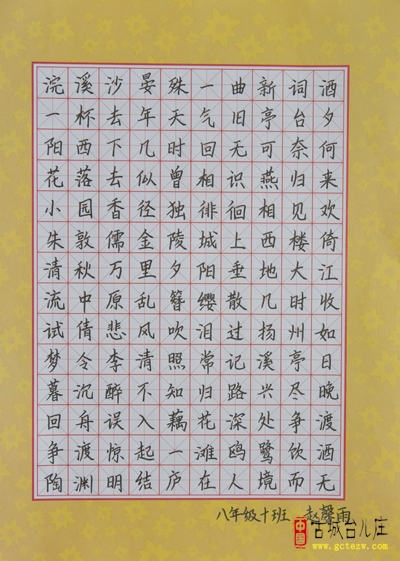 浣溪沙晏殊一曲新词酒
一杯去年天气旧亭台夕
阳西下几时回无可奈何
花落去似曾相识燕归来
小园香径独徘徊相见欢
朱敦儒金陵城上西楼倚
清秋万里夕阳垂地大江
流中原乱簪缨散几时收
试倩悲风吹泪过扬州如
梦令李清照常记溪亭日
暮沉醉不知归路兴尽晚
回舟误入藕花深处争渡
争渡惊起一滩鸥鹭饮酒
陶渊明结庐在人境而无
八年级十班 赵馨雨
中国 古城台儿庄
www.gctezw.com